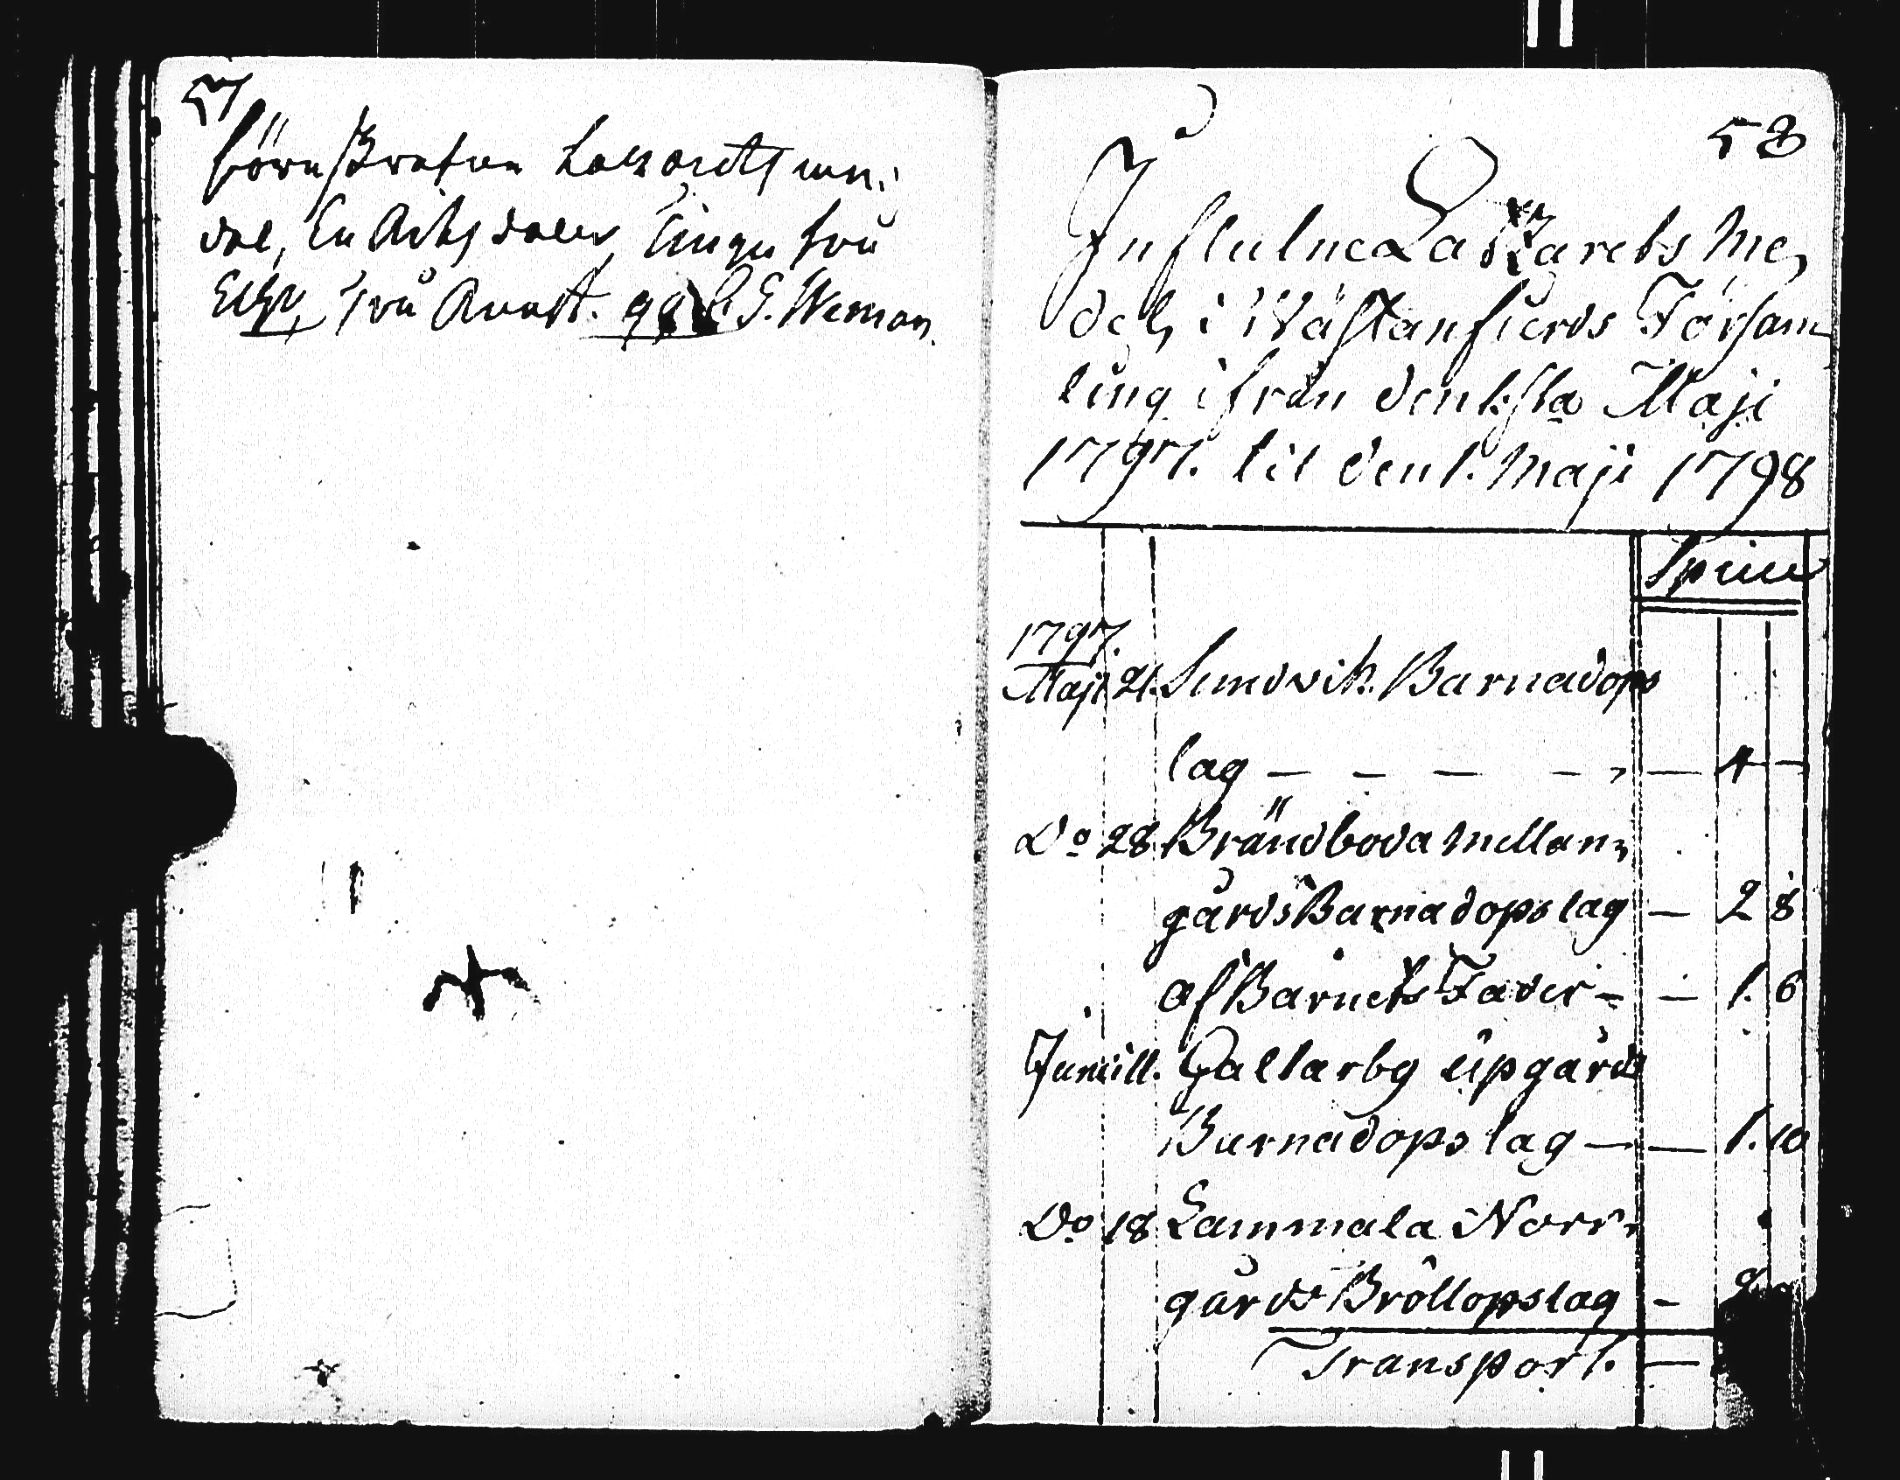 57
förestående Lazarettsme:
del, En Riksdaler Tingu två
Sch, två Runst. qvit. C. G. Weman.
58
Influtne Latzarets Me,
del, i Wästanfierds Försam
ling ifrån den 1:sta Maji
1797. til den 1. Maji 1798
Specie
1797.
Maji 21. Sundvik Barnadops
lag — — — — — 4 —
Do 28 Brändboda Mellan,
gårds Barnadopslag — 2 8
af Barnets Fader - — 1. 6
Junii 11. Galtarby Upgårds
Barnadopslag — — 1. 10
Do 18 Lammala Norr,
gårds Bröllopslag -
Transport. —